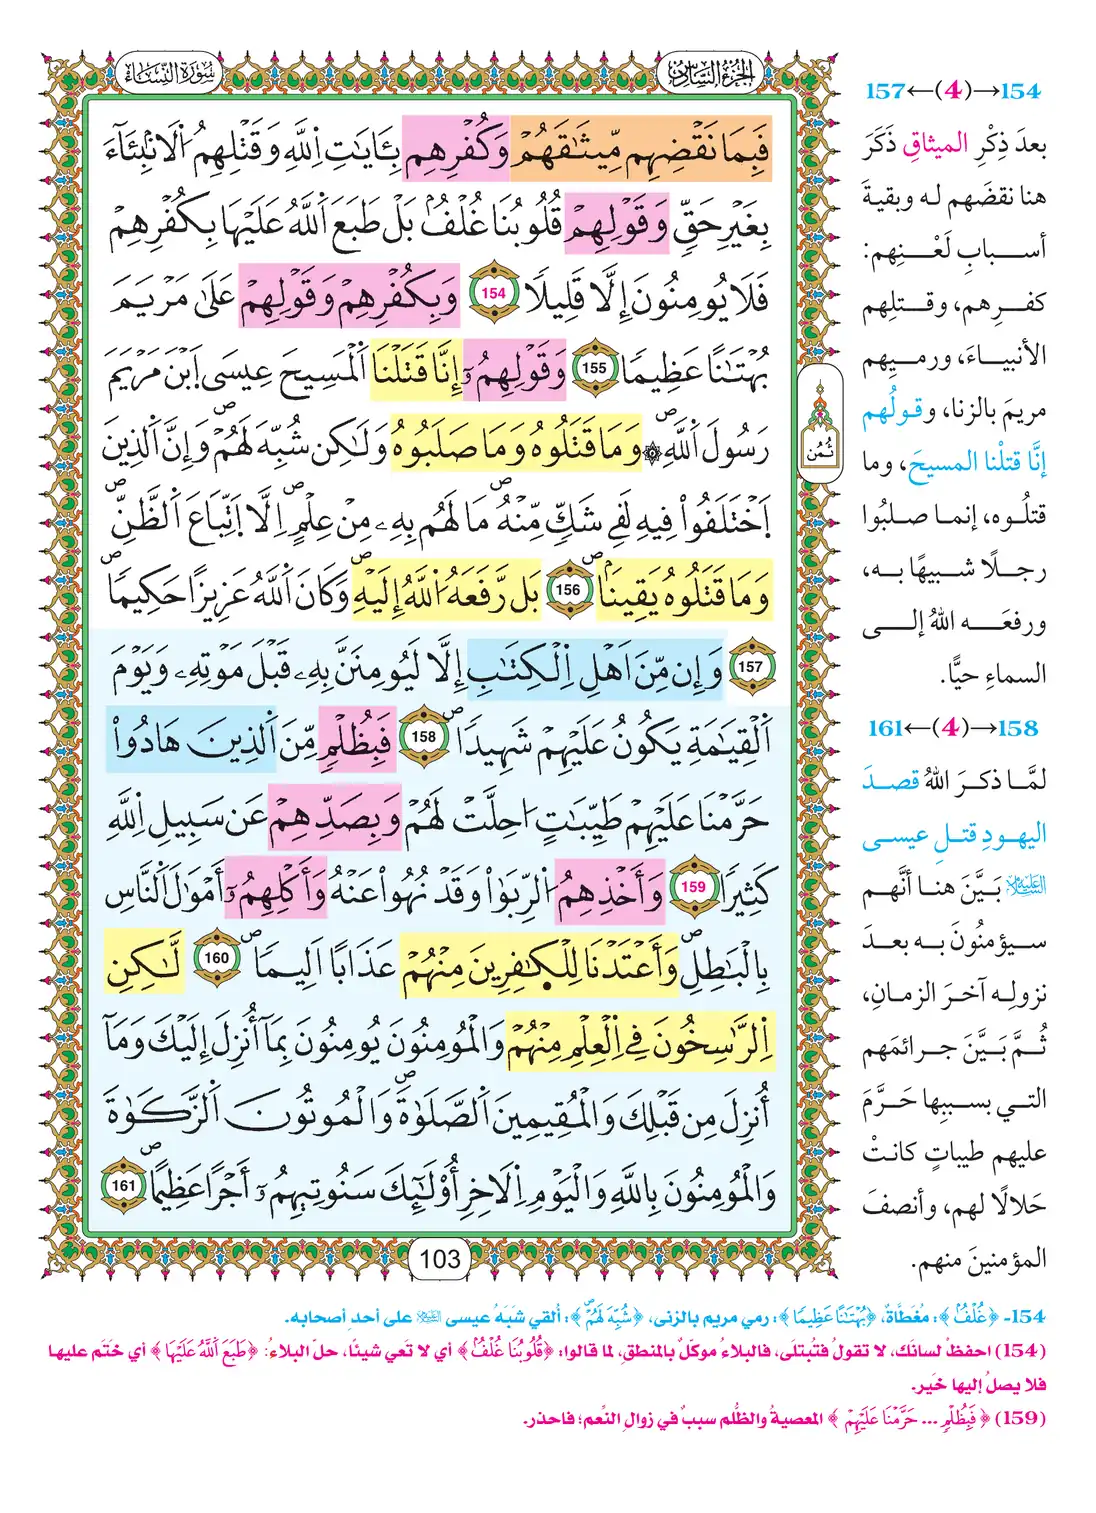 الجزء السادس
سورة النساء
فَبِمَا نَقْضِهِم مِّيثَٰقَهُمْ وَكُفْرِهِم بِـَٔايَٰتِ اِ۬للَّهِ وَقَتْلِهِمُ اُ۬لَانۢبِئَآءَ
بِغَيْرِ حَقّٖ وَقَوْلِهِمْ قُلُوبُنَا غُلْفُۢ بَلْ طَبَعَ اَ۬للَّهُ عَلَيْهَا بِكُفْرِهِمْ
فَلَا يُومِنُونَ إِلَّا قَلِيلٗا 154 وَبِكُفْرِهِمْ وَقَوْلِهِمْ عَلَىٰ مَرْيَمَ
بُهْتَٰناً عَظِيمٗا 155 وَقَوْلِهِمُۥٓ إِنَّا قَتَلْنَا اَ۬لْمَسِيحَ عِيسَى اَ۪بْنَ مَرْيَمَ
رَسُولَ اَ۬للَّهِۖ ۞ وَمَا قَتَلُوهُ وَمَا صَلَبُوهُ وَلَٰكِن شُبِّهَ لَهُمْۖ وَإِنَّ اَ۬لذِينَ
اَ۪خْتَلَفُواْ فِيهِ لَفِے شَكّٖ مِّنْهُۖ مَا لَهُم بِهِۦ مِنْ عِلْمٍۖ اِلَّا اَ۪تِّبَاعَ اَ۬لظَّنِّۖ
وَمَا قَتَلُوهُ يَقِيناَۢۖ 156 بَل رَّفَعَهُ اُ۬للَّهُ إِلَيْهِۖ وَكَانَ اَ۬للَّهُ عَزِيزاً حَكِيمٗاۖ
157 وَإِن مِّنَ اَهْلِ اِ۬لْكِتَٰبِ إِلَّا لَيُومِنَنَّ بِهِۦ قَبْلَ مَوْتِهِۦ وَيَوْمَ
اَ۬لْقِيَٰمَةِ يَكُونُ عَلَيْهِمْ شَهِيداٗۖ 158 فَبِظُلْمٖ مِّنَ اَ۬لذِينَ هَادُواْ
حَرَّمْنَا عَلَيْهِمْ طَيِّبَٰتٍ ا۟حِلَّتْ لَهُمْ وَبِصَدِّهِمْ عَن سَبِيلِ اِ۬للَّهِ
كَثِيراٗ 159 وَأَخْذِهِمُ اُ۬لرِّبَوٰاْ وَقَدْ نُهُواْ عَنْهُ وَأَكْلِهِمُۥٓ أَمْوَٰلَ اَ۬لنَّاسِ
بِالْبَٰطِلِۖ وَأَعْتَدْنَا لِلْكٰ۪فِرِينَ مِنْهُمْ عَذَاباً اَلِيماٗۖ 160 لَّٰكِنِ
اِ۬لرَّٰسِخُونَ فِے اِ۬لْعِلْمِ مِنْهُمْ وَالْمُومِنُونَ يُومِنُونَ بِمَآ أُنزِلَ إِلَيْكَ وَمَآ
أُنزِلَ مِن قَبْلِكَ وَالْمُقِيمِينَ اَ۬لصَّلَوٰةَۖ وَالْمُوتُونَ اَ۬لزَّكَوٰةَ
وَالْمُومِنُونَ بِاللَّهِ وَالْيَوْمِ اِ۬لَاخِرِ أُوْلَٰٓئِكَ سَنُوتِيهِمُۥٓ أَجْراً عَظِيماًۖ 161
ثُمُن
103
154→(4)←157
بعدَ ذِكْرِ الميثاقِ ذَكَرَ
هنا نقضَهم له وبقيةَ
أسبابِ لَعْنِهم:
كفرِهم، وقتلِهم
الأنبياءَ، ورميِهم
مريمَ بالزنا، وقولُهم
إنَّا قتلْنا المسيحَ، وما
قتلُوه، إنما صلبُوا
رجلًا شبيهًا به،
ورفعَه اللهُ إلى
السماءِ حيًّا.
158→(4)←161
لمَّا ذكرَ اللهُ قصدَ
اليهودِ قتلَ عيسى
عليه السلام بَيَّنَ هنا أنَّهم
سيؤمنُونَ به بعدَ
نزولِه آخرَ الزمانِ،
ثُمَّ بَيَّنَ جرائمَهم
التي بسببِها حَرَّمَ
عليهم طيباتٍ كانتْ
حَلالًا لهم، وأنصفَ
المؤمنينَ منهم.
154- ﴿غُلْفُۢ﴾: مُغَطَّاةٌ، ﴿بُهْتَٰناً عَظِيمٗا﴾: رمي مريم بالزنى، ﴿شُبِّهَ لَهُمْۖ﴾: أُلقي شَبَهُ عيسى عليه السلام على أحدِ أصحابه.
(154) احفظْ لسانَك، لا تقولُ فتُبتلَى، فالبلاءُ موكّلٌ بالمنطقِ، لما قالوا: ﴿قُلُوبُنَا غُلْفُۢ﴾ أي لا تَعي شيئًا، حلَّ البلاءُ: ﴿طَبَعَ اَ۬للَّهُ عَلَيْهَا﴾ أي ختَم عليها
فلا يصلُ إليها خَير.
(159) ﴿فَبِظُلْمٖ ... حَرَّمْنَا عَلَيْهِمْ﴾ المعصيةُ والظُّلم سببٌ في زوالِ النِّعم؛ فاحذر.